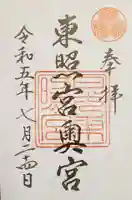 奉拝
東照宮奥宮
令和五年七月二十四日